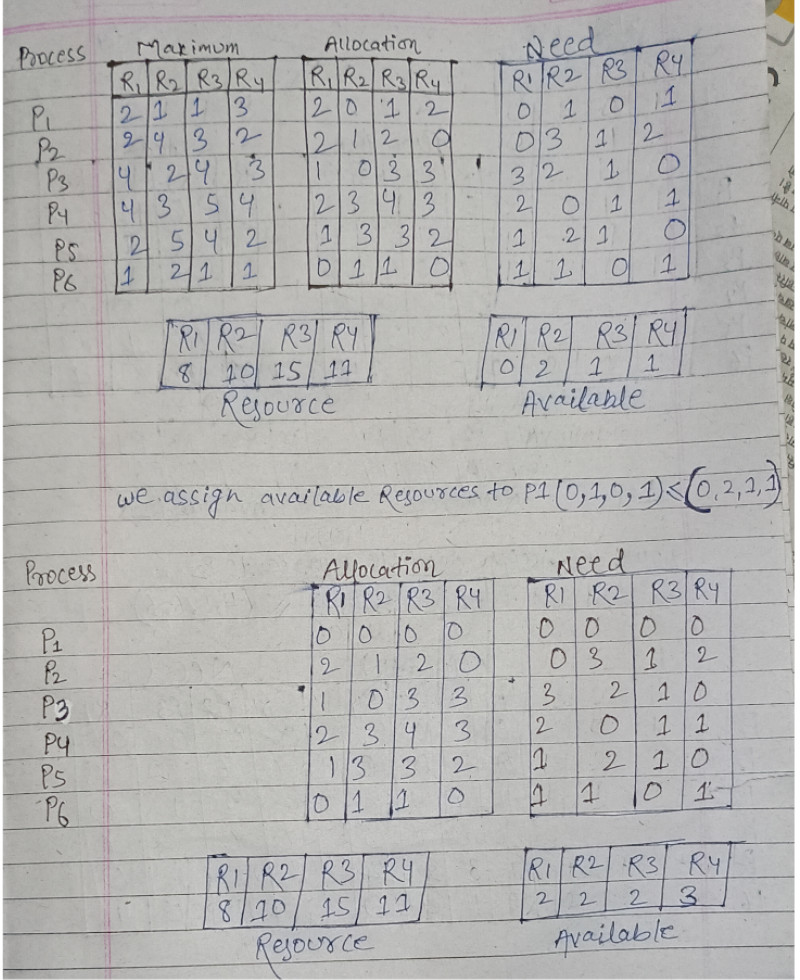 Process Maximum Allocation Need
R1 R2 R3 R4 R1 R2 R3 R4 R1 R2 R3 R4
P1 2 1 1 3 2 0 1 2 0 1 0 1
P2 2 4 3 2 2 1 2 0 0 3 1 2
P3 4 2 4 3 1 0 3 3 3 2 1 0
P4 4 3 5 4 2 3 4 3 2 0 1 1
P5 2 5 4 2 1 3 3 2 1 2 1 0
P6 1 2 1 1 0 1 1 0 1 1 0 1
R1 R2 R3 R4 R1 R2 R3 R4
8 10 15 11 0 2 1 1
Resource Available
we assign available Resources to P1 (0,1,0,1)<(0,2,1,1)
Process Allocation Need
R1 R2 R3 R4 R1 R2 R3 R4
P1 0 0 0 0 0 0 0 0
P2 2 1 2 0 0 3 1 2
P3 1 0 3 3 3 2 1 0
P4 2 3 4 3 2 0 1 1
P5 1 3 3 2 1 2 1 0
P6 0 1 1 0 1 1 0 1
R1 R2 R3 R4 R1 R2 R3 R4
8 10 15 11 2 2 2 3
Resource Available